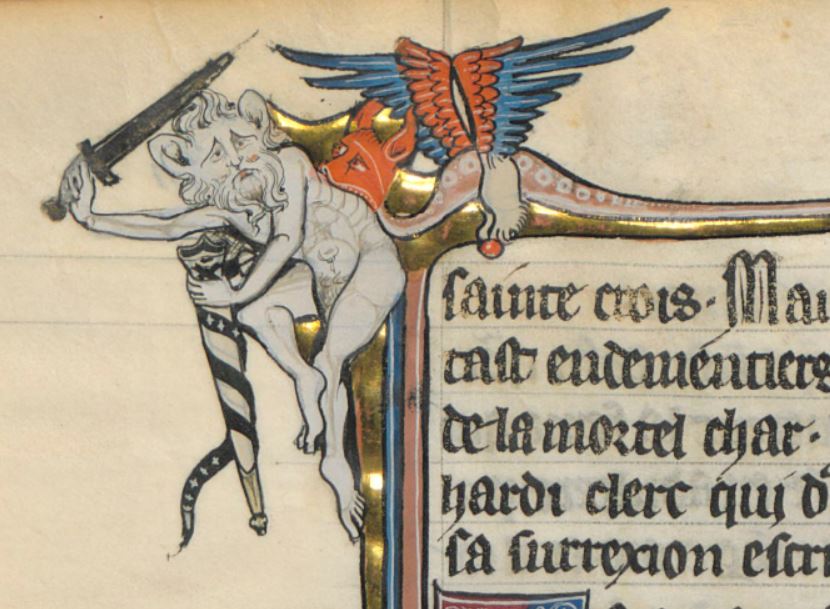 sainte crois · Mau
tast endementiers
de la mortel char ·
hardi clerc qui d
sa surrexion escri